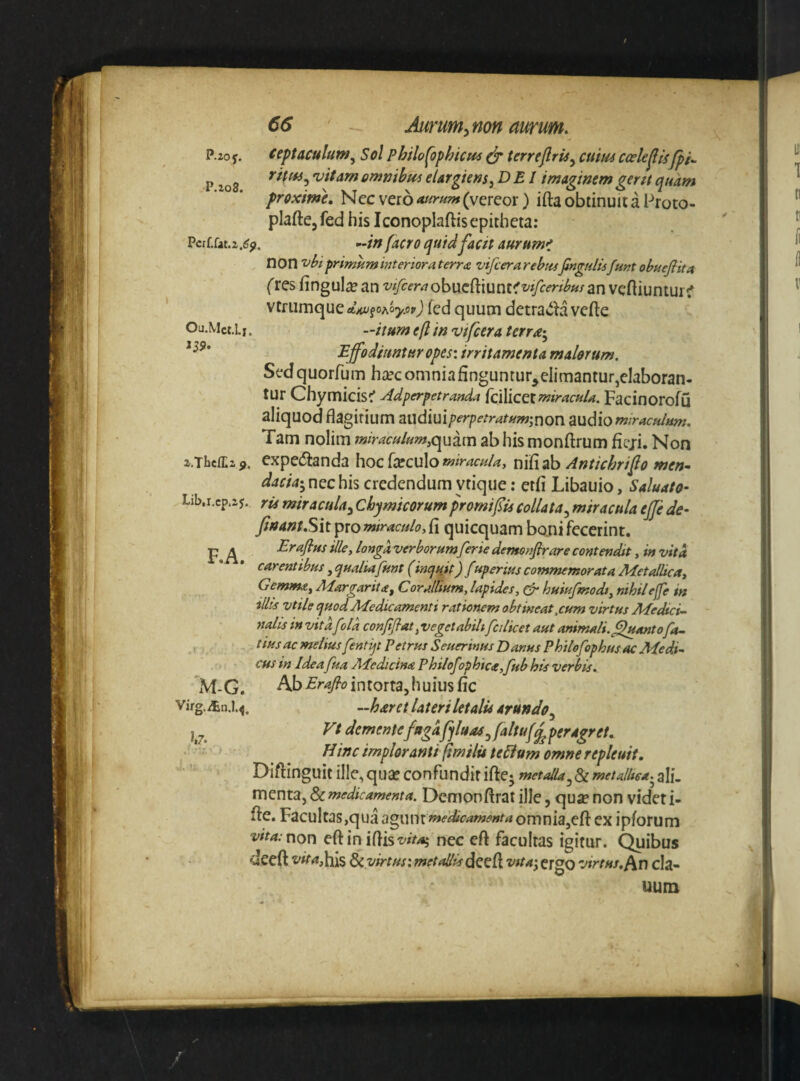 66 Aurum, non aurum.
P.205. ceptaculum, Sol Philosophicus & terrestris, cuius cœlestis spi-
P.208. ritus, vitam omnibus elargiens, D E I imaginem gerit quam
proxime. Nec vero aurum (vereor) ista obtinuit à Proto-
plaste, sed his Iconoplastis epitheta:
Pers.sat.2,69. --in sacro quid facit aurum?
non vbi primùm interiora terræ viscera rebus singulis sunt obuestita
(res singulæ an viscera obuestiunt? visceribus an vestiuntur?
vtrumque ) sed quum detractâ veste
Ou.Met.l.1. --itum est in viscera terræ;
139. Effodiuntur opes: irritamenta malorum.
Sed quorsum hæc omnia finguntur, elimantur, elaboran-
tur Chymicis? Ad perpetranda scilicet miracula. Facinorosũ
aliquod flagitium audiui perpetratum; non audio miraculum.
Tam nolim miraculum, quàm ab his monstrum fieri. Non
2.Thess.2 9. expectanda hoc sæculo miracula, nisi ab Antichristo men-
dacia; nec his credendum vtique: etsi Libauio, Saluato-
Lib.1.ep.25. ris miracula, Chymicorum promissis collata, miracula esse de-
sinant. Sit pro miraculo, si quicquam boni fecerint.
F.A. Erastus ille, longâ verborum serie demonstrare contendit, in vitâ
carentibus, qualia sunt (inquit) superius commemorata Metallica,
Gemmæ, Margaritæ, Corallium, lapides, & huiusmodi, nihil esse in
illis vtile quod Medicamenti rationem obtineat, cum virtus Medici-
nalis in vitâ solâ consistat, vegetabili scilicet aut animali. Quanto sa-
tius ac melius sentijt Petrus Seuerinus Danus Philosophus ac Medi-
cus in Idea sua Medicinæ Philosophicæ, sub his verbis.
M-G. Ab Erasto intorta, huius sic
Virg.Æn.l.4. --hæret lateri letalis arundo,
Vt demente fugâ syluas, saltusq; peragret.
Hinc imploranti similis tectum omne repleuit.
Distinguit ille, quæ confundit iste; metalla, & metallica; ali-
menta, & medicamenta. Demonstrat ille, quæ non videt i-
ste. Facultas, quâ agunt medicamenta omnia, est ex ipsorum
vita: non est in istis vita; nec est facultas igitur. Quibus
deest vita, his & virtus: metallis deest vita; ergo virtus. An cla-
uum